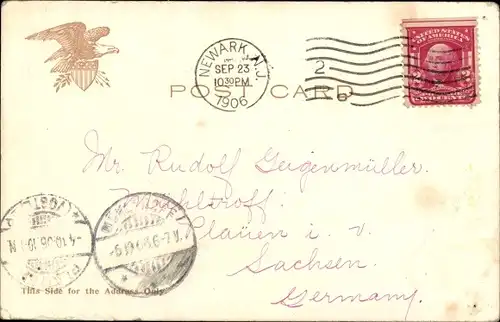 NEWARK, N.J.
SEP 23
10:30 PM
1906
2
POST CARD
UNITED STATES
OF AMERICA
2 2
TWO CENTS
Mr. Rudolf Geigenmüller.
Mühltroff.
Plauen i. V.
Sachsen
Germany.
(VOGTL
4.10.06.10-11N
This Side for the Address Only.